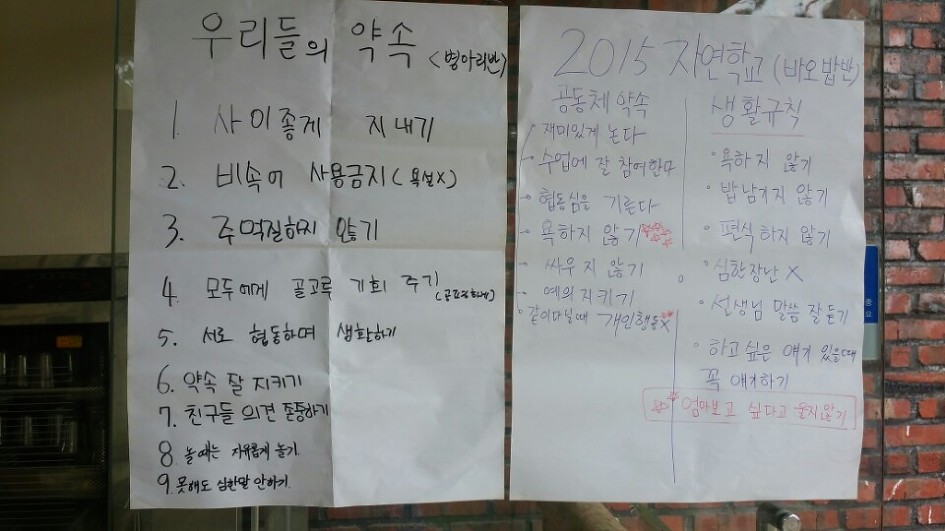 우리들의 약속 <병아리반>
1. 사이좋게 지내기
2. 비속어 사용금지 (욕설X)
3. 주먹질하지 않기
4. 모두에게 골고루 기회 주기 (공평하게)
5. 서로 협동하며 생활하기
6. 약속 잘 지키기
7. 친구들 의견 존중하기
8. 놀때는 자유롭게 놀기
9. 못해도 심한말 안하기
2015 자연학교 (바오밥반)
공동체 약속
재미있게 논다
- 수업에 잘 참여한다
- 협동심을 기른다
- 욕하지 않기
- 싸우지 않기
- 예의 지키기
같이다닐때 개인행동X
생활규칙
• 욕하지 않기
• 밥 남기지 않기
• 편식하지 않기
• 심한장난 X
• 선생님 말씀 잘 듣기
• 하고 싶은 얘기 있을때
꼭 얘기하기
엄마보고 싶다고 울지않기